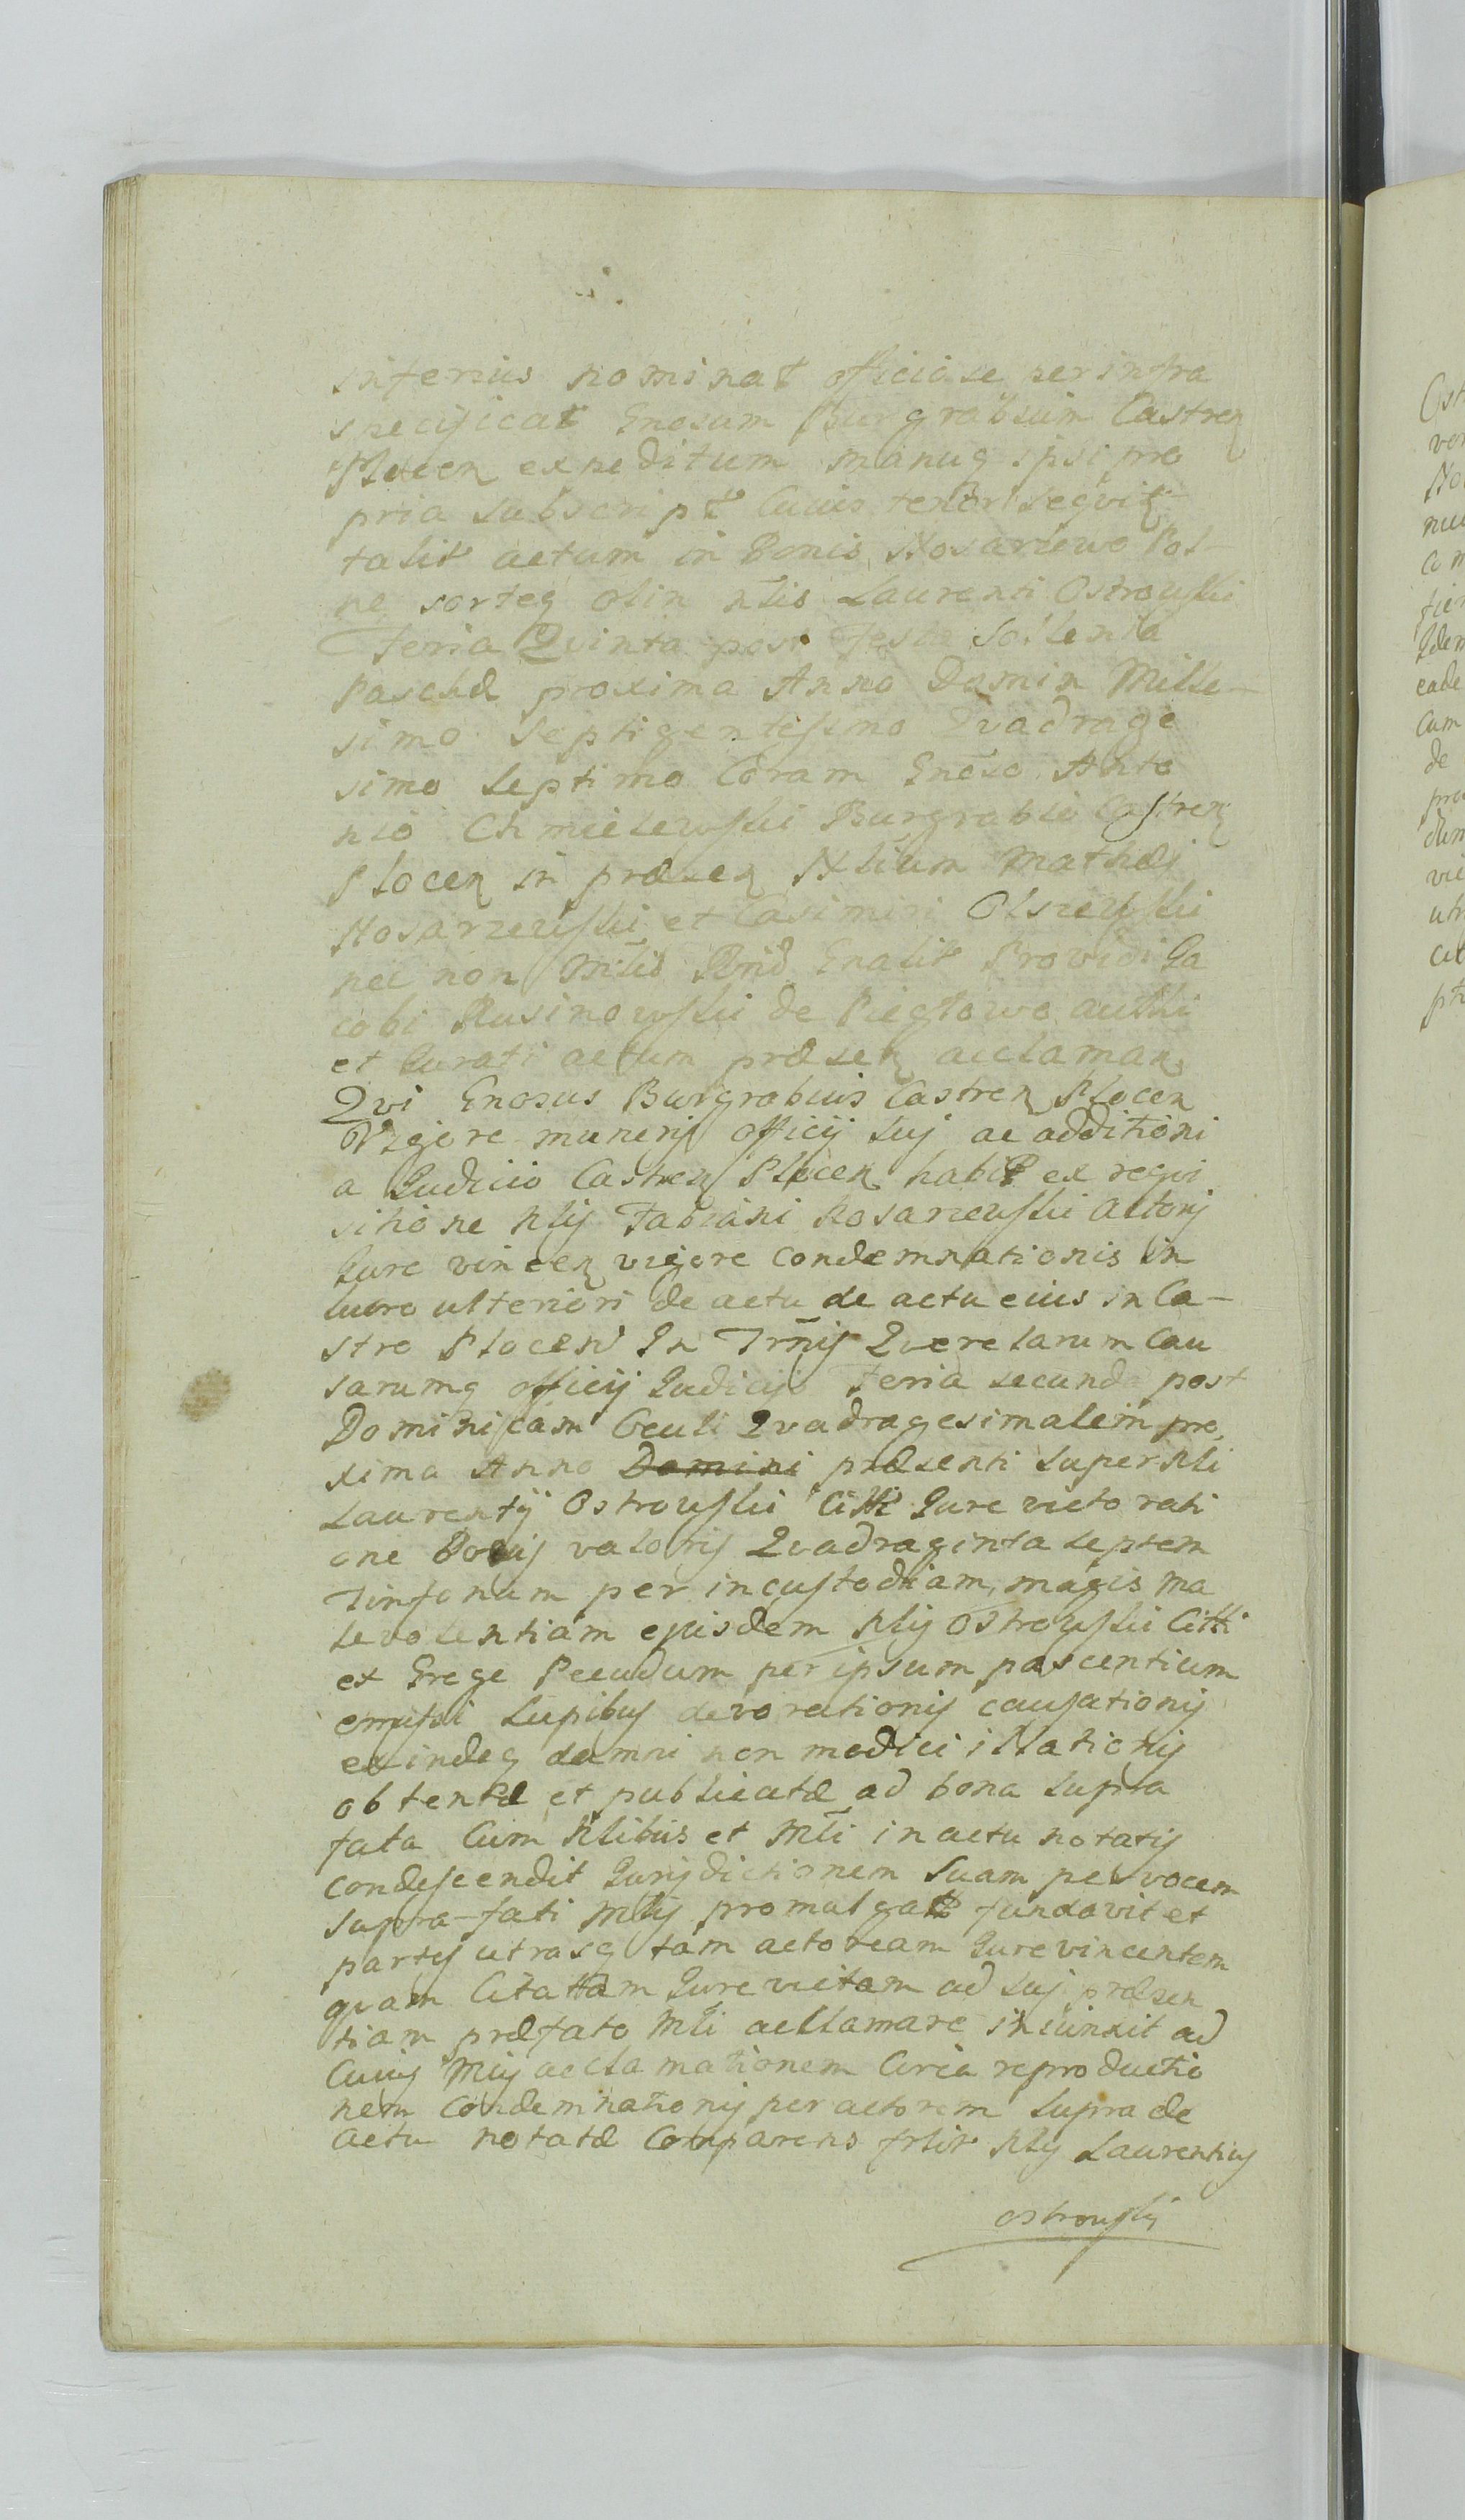 inferius nominat officiose per infra
specificat Gnosum Burgrabium Castren
Plocen expeditum manuq ipsi pro
pria subscript Cuius tenor seqvit
talit actum in Bonis Kosarzewo Pol-
ne sorteq olim nlis Laurenti Ostrowski
Feria Qvinta post Festa Sollenia
Paschæ proxima Anno Domin Mille-
simo Septigentesimo Qvadrage
simo septimo Coram Gnoso Anto
nio Chmielewski Burgrabio Castren
Plocen in præsen Nlium Mathæi
Kosarzewski et Casimiri Olszewski
nec non Mtlis Rnd Gnalit Providi Ja
cobi Rusinowski de Pieglowo authi
et Jurati actum præsen acclaman
Qvi Gnosus Burgrabius Castren Plocen
Vigore muneris officij sui ac additioni
a Judicio Castren Plocen habit ex reqvi
sitione Nlis Fabiani Kosarzewski Actoris
Jure vincen vigore condemnationis in
lucro ulteriori de actu de actu eius in Ca-
stro Plocen In Trnis Qverelarum Cau
sarumq officij Judicijs Feria secunda post
Dominicam Oculi Qvadragesimalem pro,
xima Anno Domini præsenti super Nli
Laurentij Ostrowski Citti Jure victo rati
one Bovis valoris Qvadraginta septem
Tinfonum per incustodiam, magis ma
levolentiam ejusdem Nlis Ostrowski Citti
ex Grege Pecudum per ipsum pascentium
emissi Lupibus devorationis causationis
exindeq damni non modici illationis
obtentæ et publicatæ ad bona supra
fata Cum Nlibus et Mtli in actu notatis
condescendit Jurisdictionem Suam per vocem
supra-fati Mtlis promulgat fundavit et
partes utrasq tam actoream Jure vincentem
qvam Citattam Jure victam ad sui præsen
tiam præfato Mtli acclamare iniunxit ad
Cuius Mtlis acclamationem Circa reproductio
nem Condemnationis per actorem supra de
actu notatæ Comparens prlit Nlis Laurentius
Ostrowski